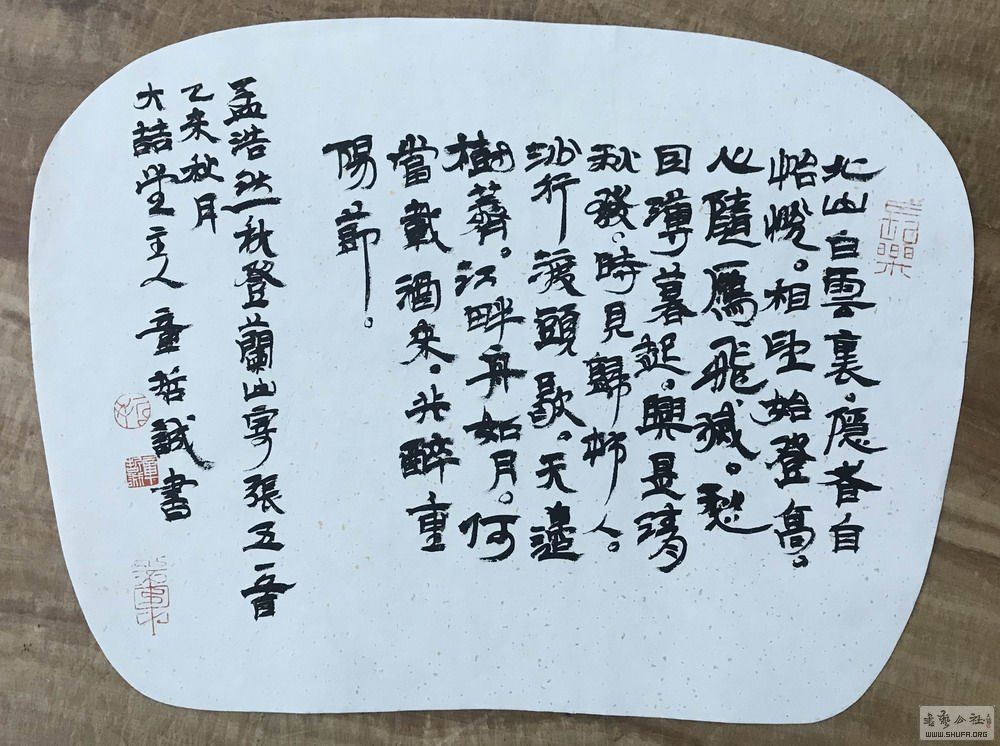 北山白雲裏。隱者自
怡悅。相望始登高。
心隨鴈飛滅。愁
因薄暮起。興是清
秋發。時見歸村人。
沙行渡頭歇。天邊
樹薺。江畔舟如月。何
當載酒來。共醉重
陽節。
孟浩然秋登蘭山寄張五一首
乙未秋月
大喆堂主人童哲誠書
書藝公社
WWW.SHUFA.ORG